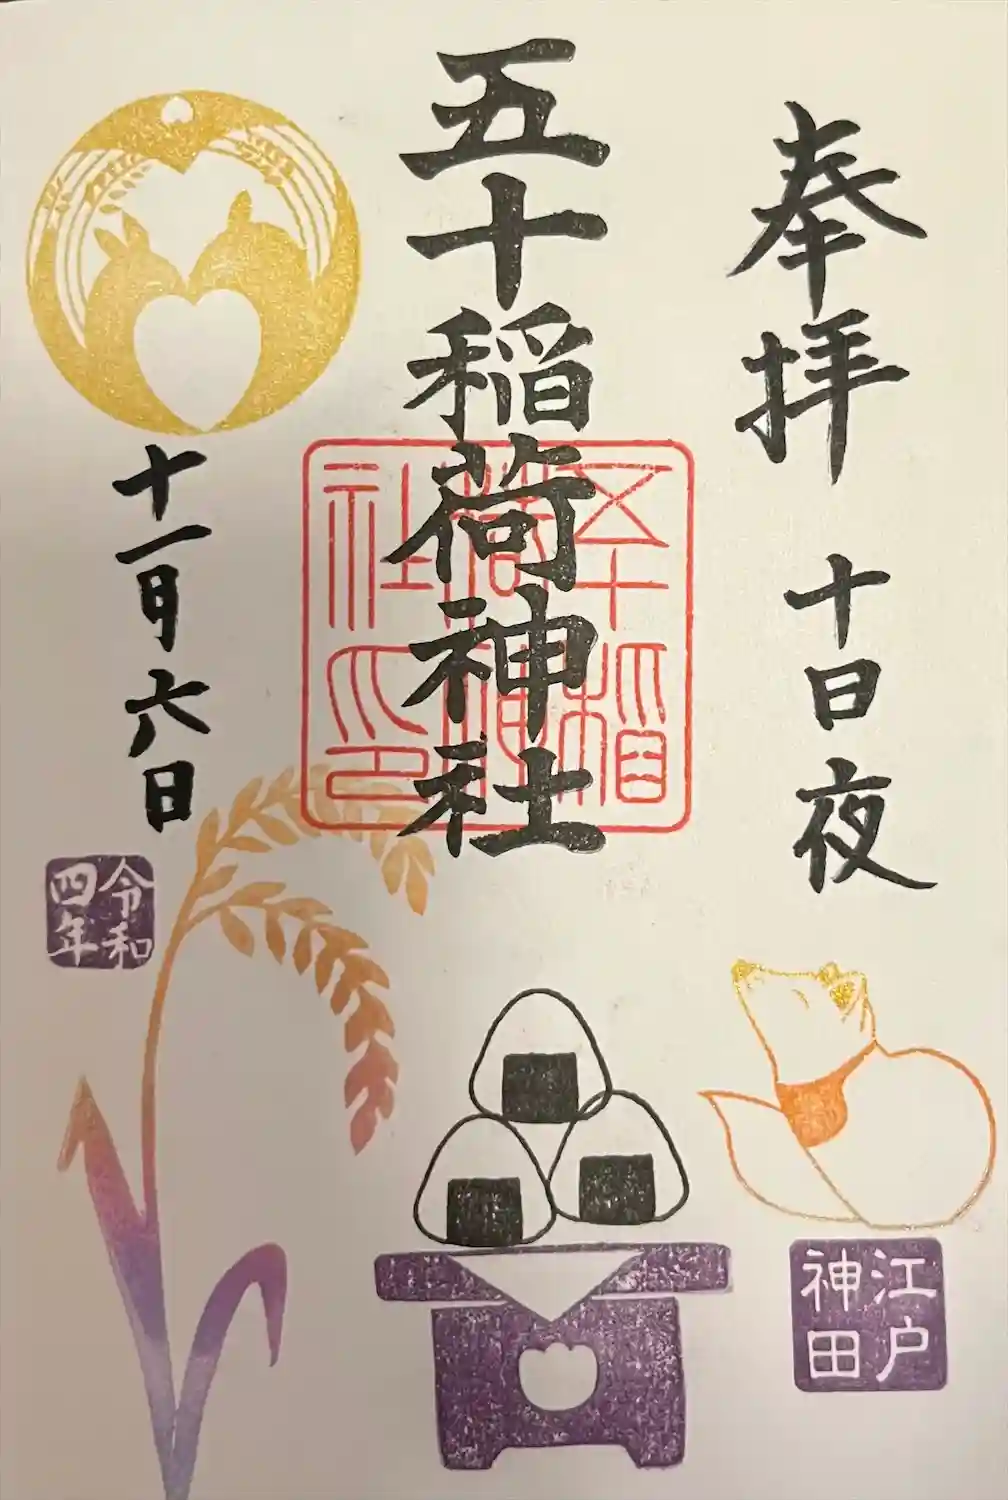 奉拝 十日夜
江戸
神田
五十稲荷神社
五十稲
荷神
社印
十一月六日
令和
四年